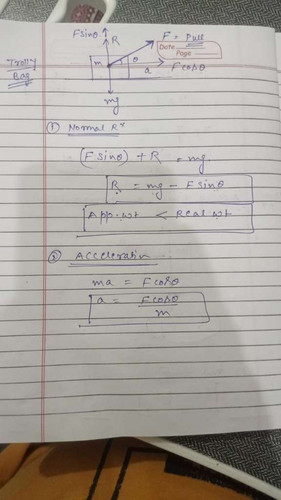 Fsinθ
R
F = Pull
Date
Page
Trolly
Bag
m
θ
a
Fcosθ
mg
① Normal Rˣ
(Fsinθ) + R = mg
R = mg - Fsinθ
App. wt < Real wt
② Acceleration
ma = Fcosθ
a = Fcosθ
m